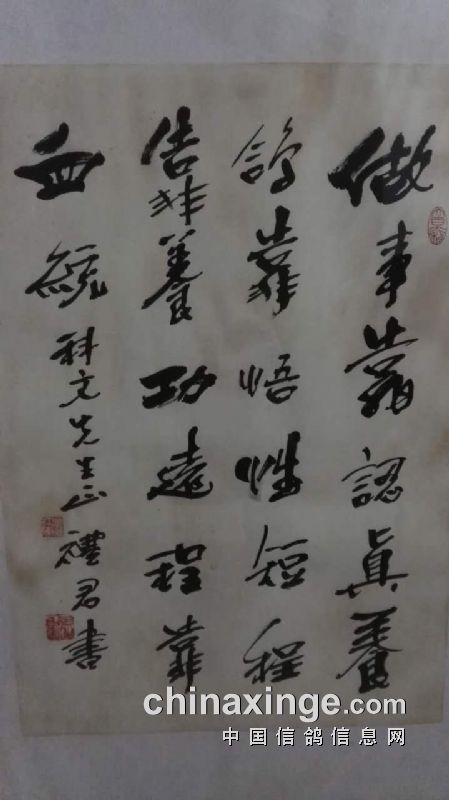 做事靠認真養
鴿靠悟性短程
靠養功遠程靠
血統 科文先生正 禮君書
chinaxinge.com
中国信鸽信息网